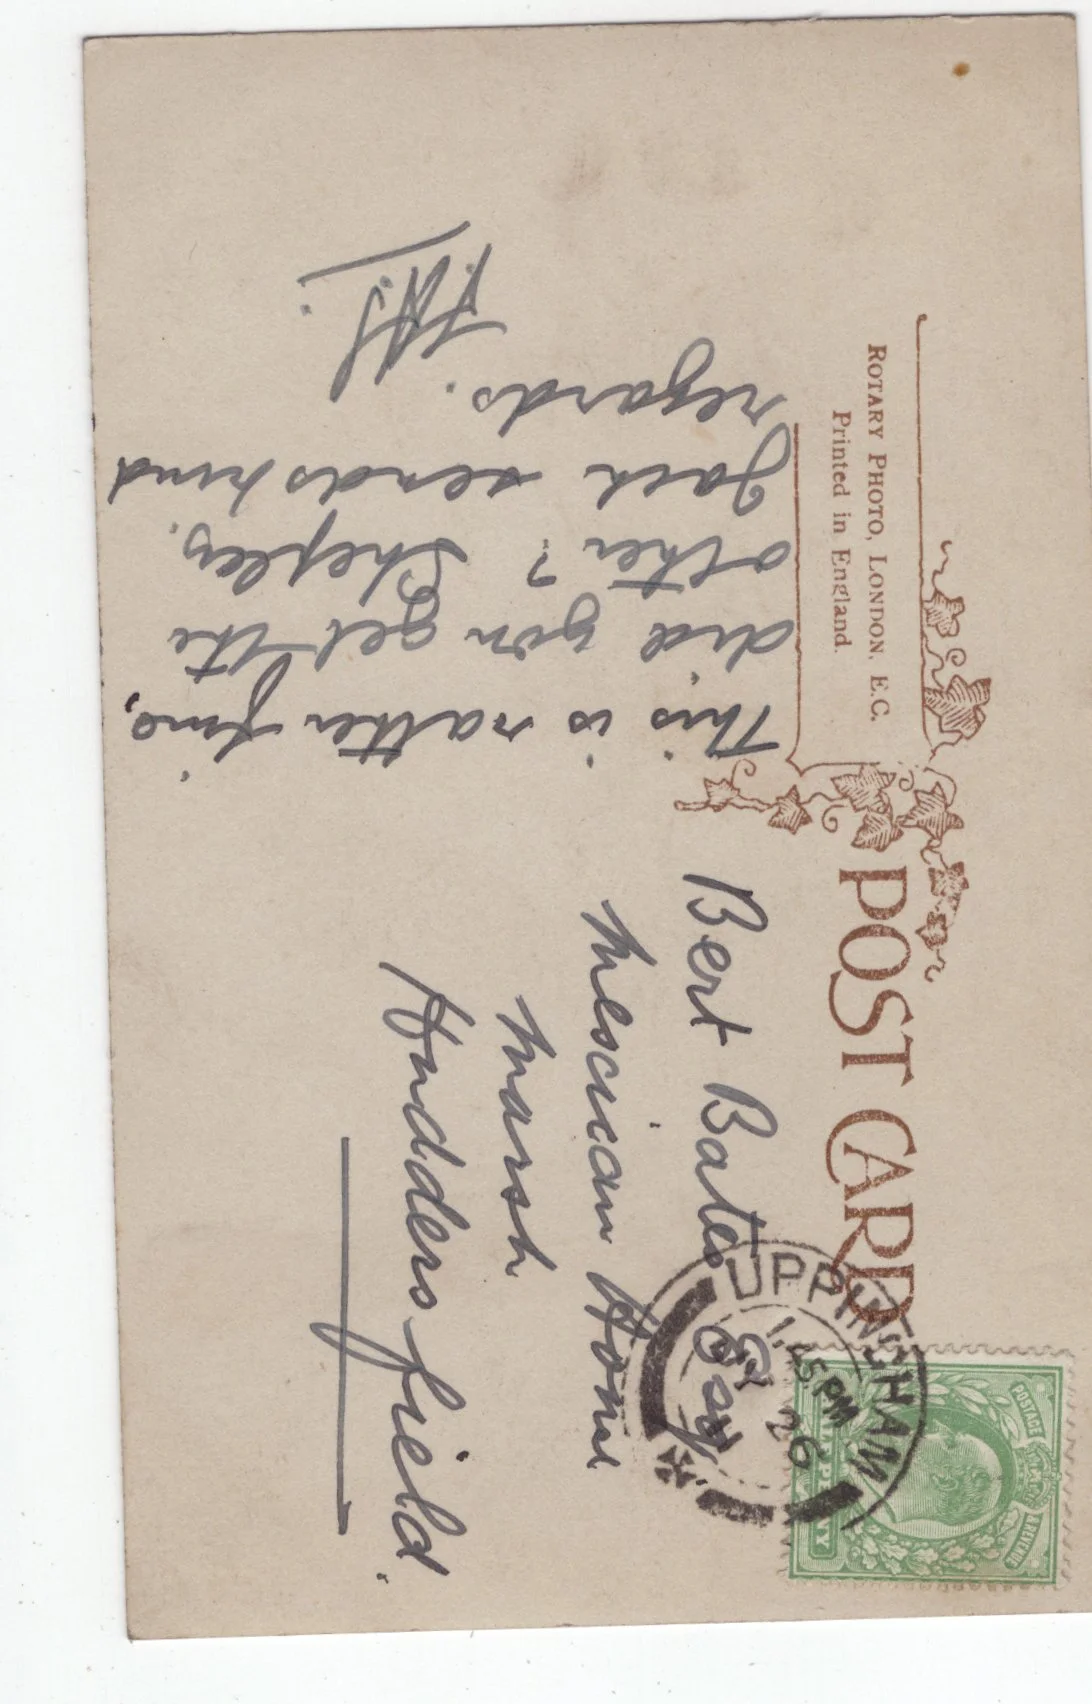 POST CARD
ROTARY PHOTO, LONDON, E.C.
Printed in England.
This is rather fine,
did you get the
other? Shepley.
Jack sends kind
regards.
Bert Bates Esq
Mescican Home
Marsh
Huddersfield.
UPPINGHAM
1.45 PM
26
POSTAGE
& REVENUE